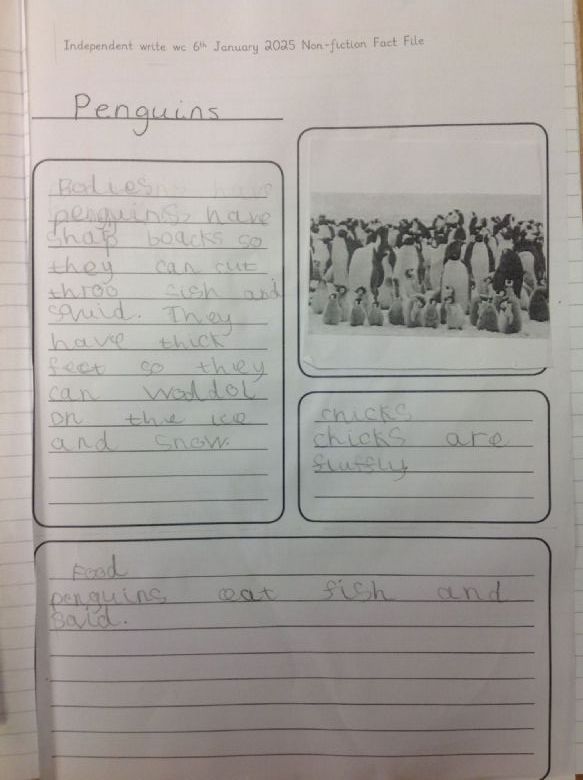 Independent write wc 6th January 2025 Non-fiction Fact File
Penguins
Bodies
penguins have
shap boacks so
they can cut
throo fish and
squid. They
have thick
feet so they
can waddol
on the ice
and snow.
chicks
chicks are
fluffly
Food
penguins eat fish and
sqid.